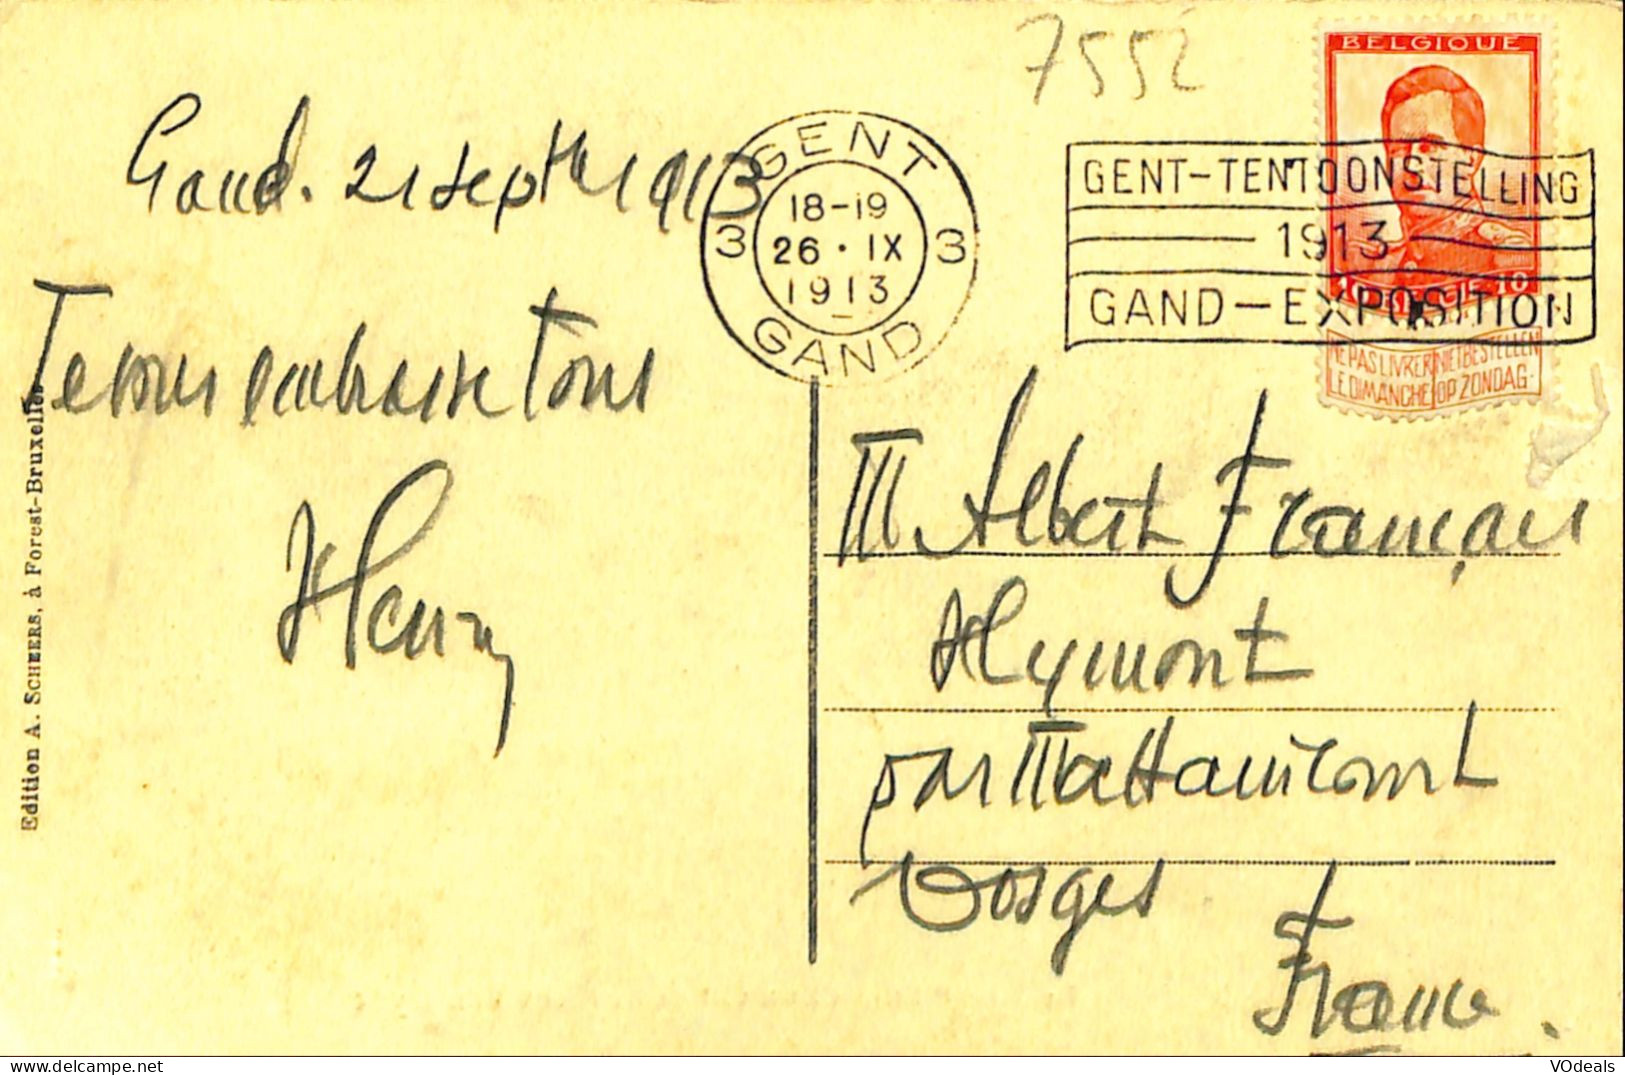 7552
BELGIQUE
GENT
3 18-19 3
26 · IX
1913
GAND
GENT-TENTOONSTELLING
1913
GAND-EXPOSITION
10 10
NE PAS LIVRER NIET BESTELLEN
LE DIMANCHE OP ZONDAG.
Gand. 21 septbre 1913
Je vous embrasse tous
Henry
M. Albert Français
Hymont
par Mattaincourt
Vosges
France.
Edition A. SCHEERS, à Forest-Bruxelles
VOdeals